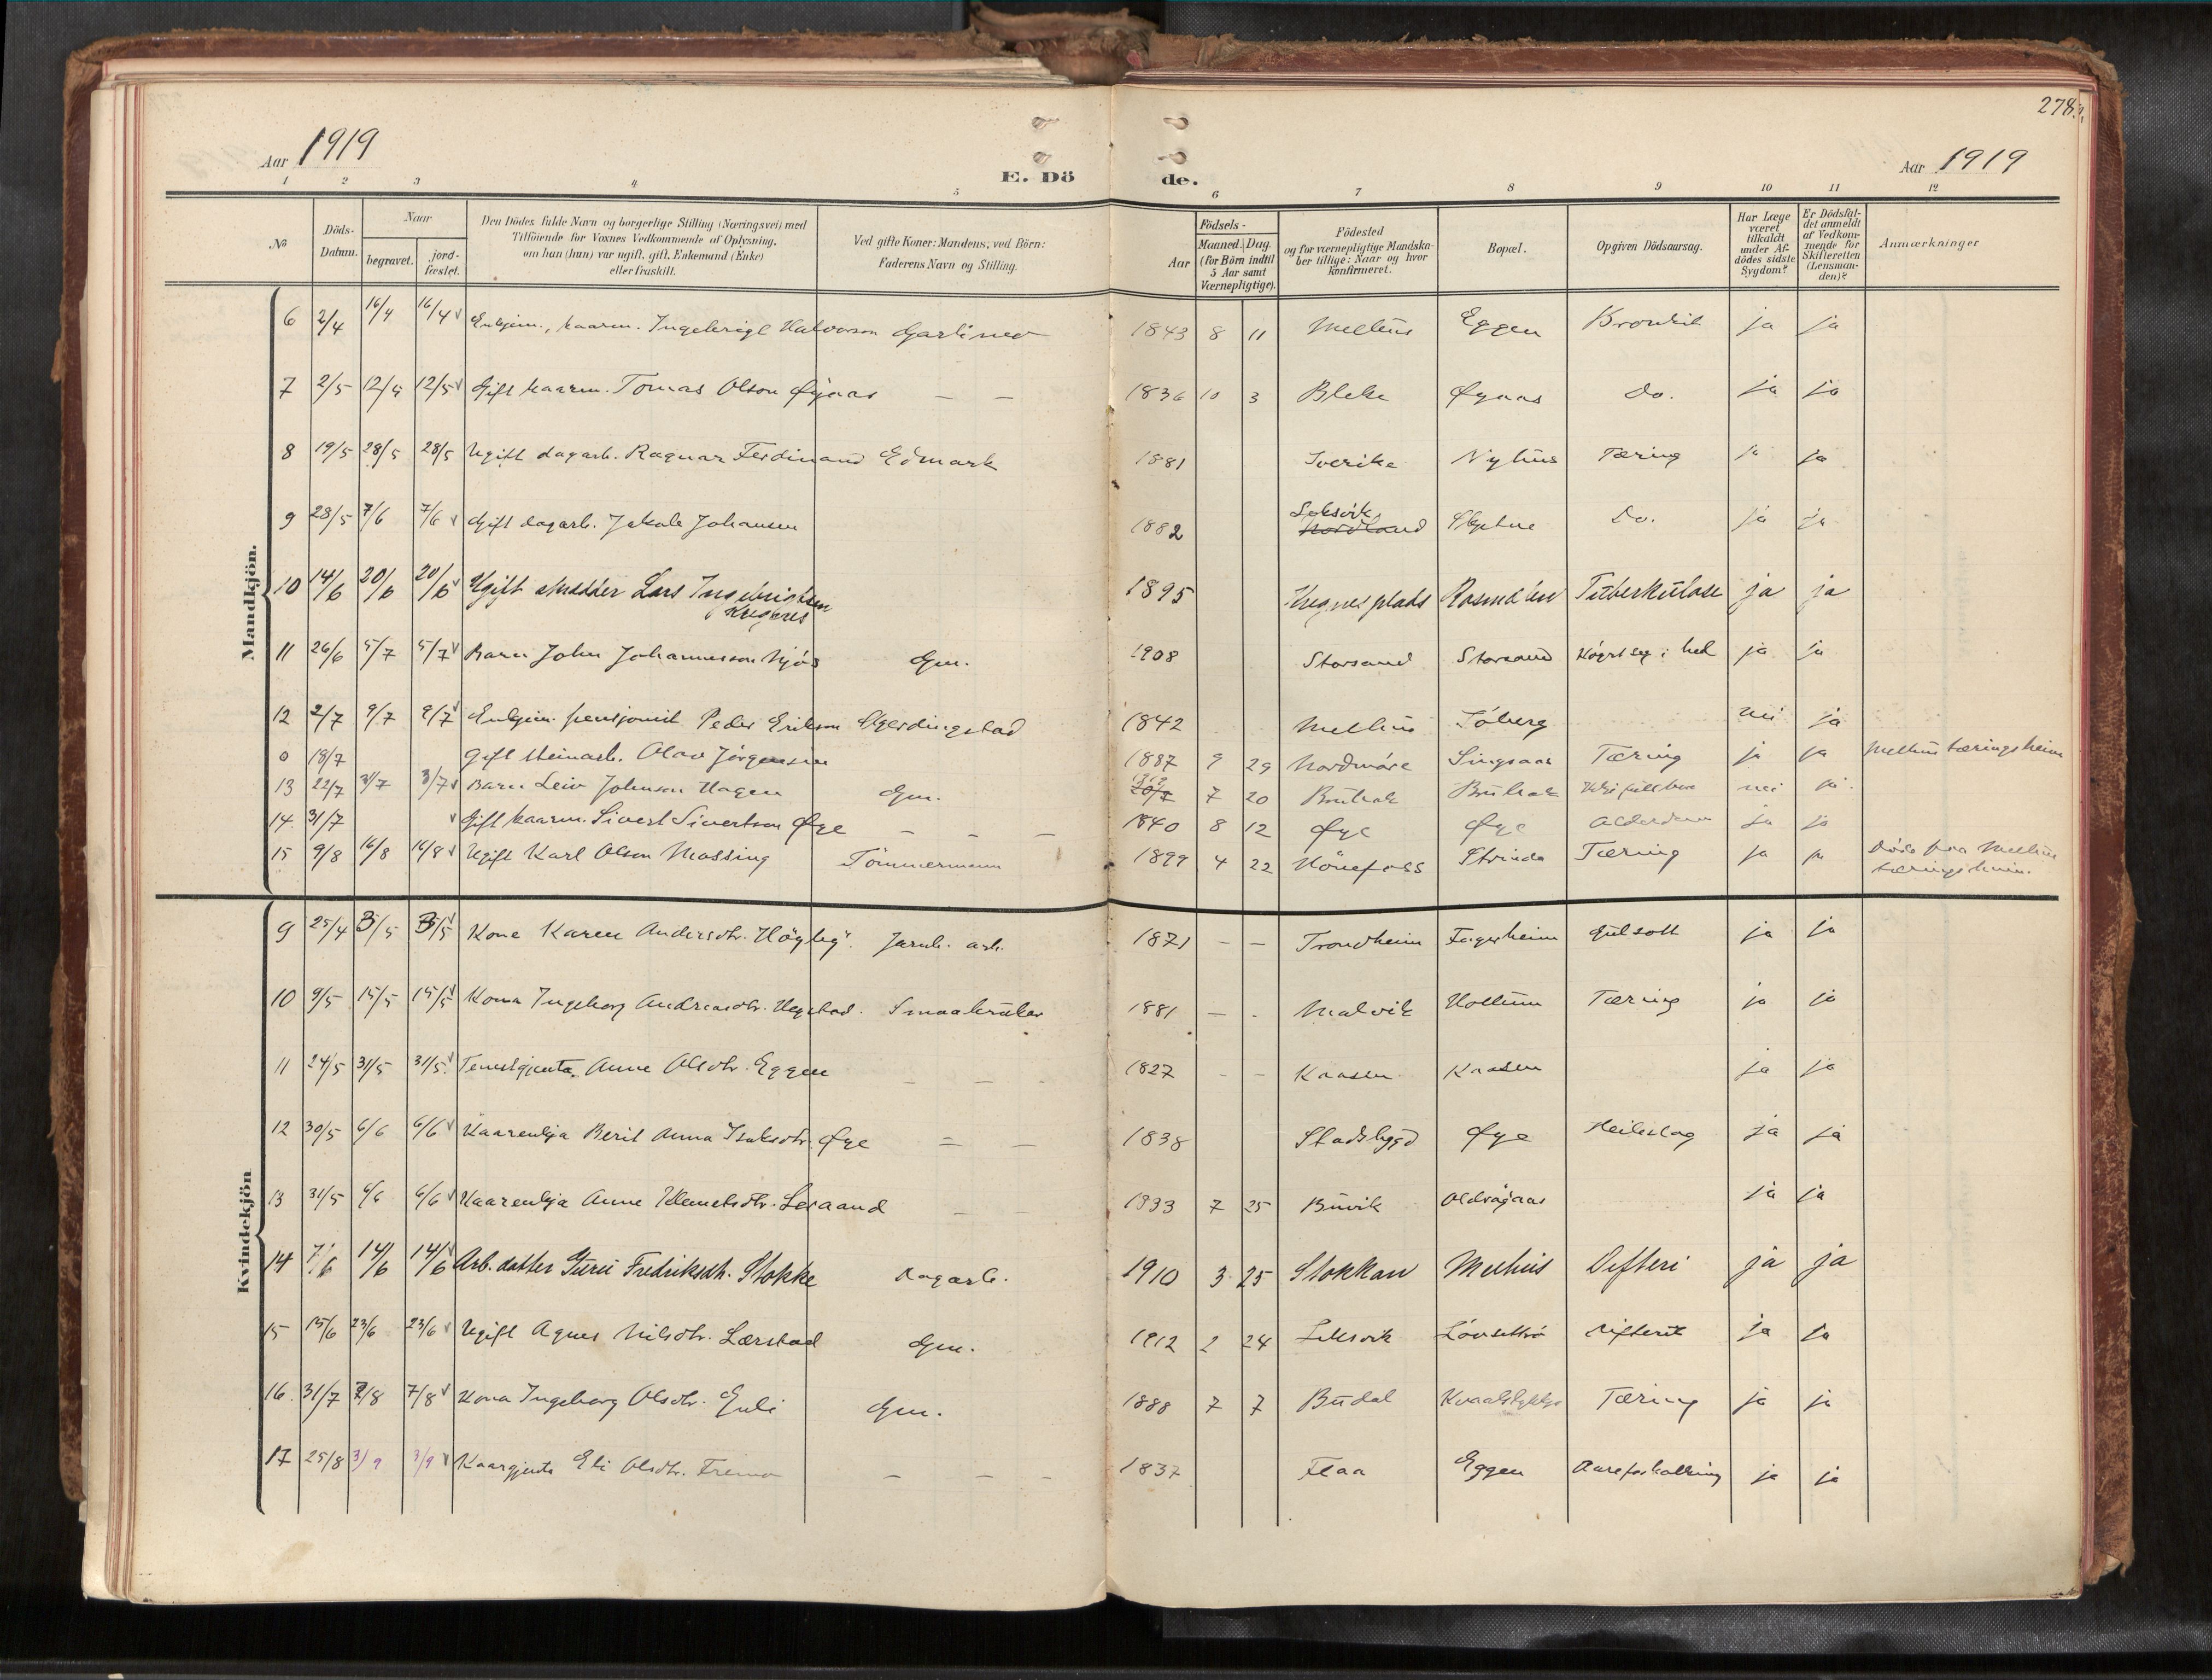 278
Aar 1919
E. Döde.
Aar 1919
1 2 3 4 5 6 7 8 9 10 11 12
No
Döds-Datum.
Naar
begravet.
jord-fæstet.
Den Dödes fulde Navn og borgerlige Stilling (Næringsvei) med
Tilföiende for Voxnes Vedkommende af Oplysning,
om han (hun) var ugift, gift, Enkemand (Enke)
eller fraskilt.
Ved gifte Koner: Mandens, ved Börn:
Faderens Navn og Stilling.
Aar
Födsels-
Maaned. Dag.
(for Börn indtil
5 Aar samt
Værnepligtige).
Födested
og for værnepligtige Mandska-
ber tillige: Naar og hvor
konfirmeret.
Bopæl.
Opgiven Dödsaarsag.
Har Læge
været
tilkaldt
under Af-
dödes sidste
Sygdom?
Er Dödsfal-
det anmeldt
af Vedkom-
mende for
Skifteretten
(Lensman-
den)?
Anmærkninger
Mandkjön.
6 2/4 16/4 16/4 Enkjem., kaarm. Ingebrigt Halvorson Garlimo 1843 8 11 Melhus Eggen Bronkit ja ja
7 2/5 12/5 12/5 Gift kaarm. Tomas Olson Øyaas — — 1836 10 3 Bleke Øyaas Do. ja ja
8 19/5 28/5 28/5 Ugift dagarb. Ragnar Ferdinand Edmark 1881 Sverike Nyhus Tæring ja ja
9 28/5 7/6 7/6 Gift dagarb. Jakob Johansen 1882 Leksvik Nordland Do. ja ja
10 14/6 20/6 20/6 Ugift skrædder Lars Ingebrigtsen Kregnes 1895 Kregnesplads Rosmælen Tuberkulose ja ja
11 26/6 5/7 5/7 Barn John Johannesson Njøs Gm. 1908 Storsand Storsand ja ja
12 2/7 9/7 9/7 Enkjem. pensjonist Peder Erikson Gjerdingstad 1842 Melhus Söberg nei ja
0 18/7 Gift steinarb. Olav Jörgensen 1887 9 29 Nordmöre Singsaas Tæring ja ja Melhus tæringsheim
13 22/7 31/7 31/7 Barn Leiv Johnson Hagen Gm. 1919 7 20 Bruhak Bruhak nei ja.
14. 31/7 Gift kaarm. Sivert Sivertson Øye — — — 1840 8 12 Øye Øye Alderdom ja ja
15 9/8 16/8 16/8 Ugift Karl Olson Mossing Tömmermann 1899 4 22 Hönefoss Strinda Tæring ja ja Döde paa Melhus
tæringsheim.
Kvindekjön
9 25/4 3/5 3/5 Kone Karen Andersdtr. Höghg. Jarnb. arb. 1871 — — Trondheim Fagerheim Gulsott ja ja
10 9/5 15/5 15/5 Kona Ingeborg Andreasdtr. Hegstad. Smaabrukar 1881 — - Malvik Hollum Tæring ja ja
11 24/5 31/5 31/5 Tenestgjenta. Anne Olsdtr. Eggen — — 1827 - - Kaasen Kaasen ja ja
12 30/5 6/6 6/6 Kaarenkja Berit Anna Isaksdtr. Øye = — 1838 Stadsbygd Øye Heileslag ja ja
13 31/5 6/6 6/6 Kaarenkja Anne Klemetsdtr. Lesaand — — 1833 7 25 Buvik ja ja
14 7/6 14/6 14/6 Arb. datter Guru Fredriksdtr. Stokke Dagarb. 1910 3 25 Stokkan Melhus Difteri ja ja
15 15/6 23/6 23/6 Ugift Agnes Nilsdtr. Lærstad Gm. 1912 2 24 Leksvik Lövsettrö Difterit ja ja
16. 31/7 7/8 7/8 Kona Ingeborg Olsdtr. Enli Gm. 1888 7 7 Budal Kvaalslykkja Tæring ja ja
17 25/8 3/9 3/9 Kaargjenta Eli Olsdtr. Fremo — — — 1837 Flaa Eggen Aareforkalkning ja ja